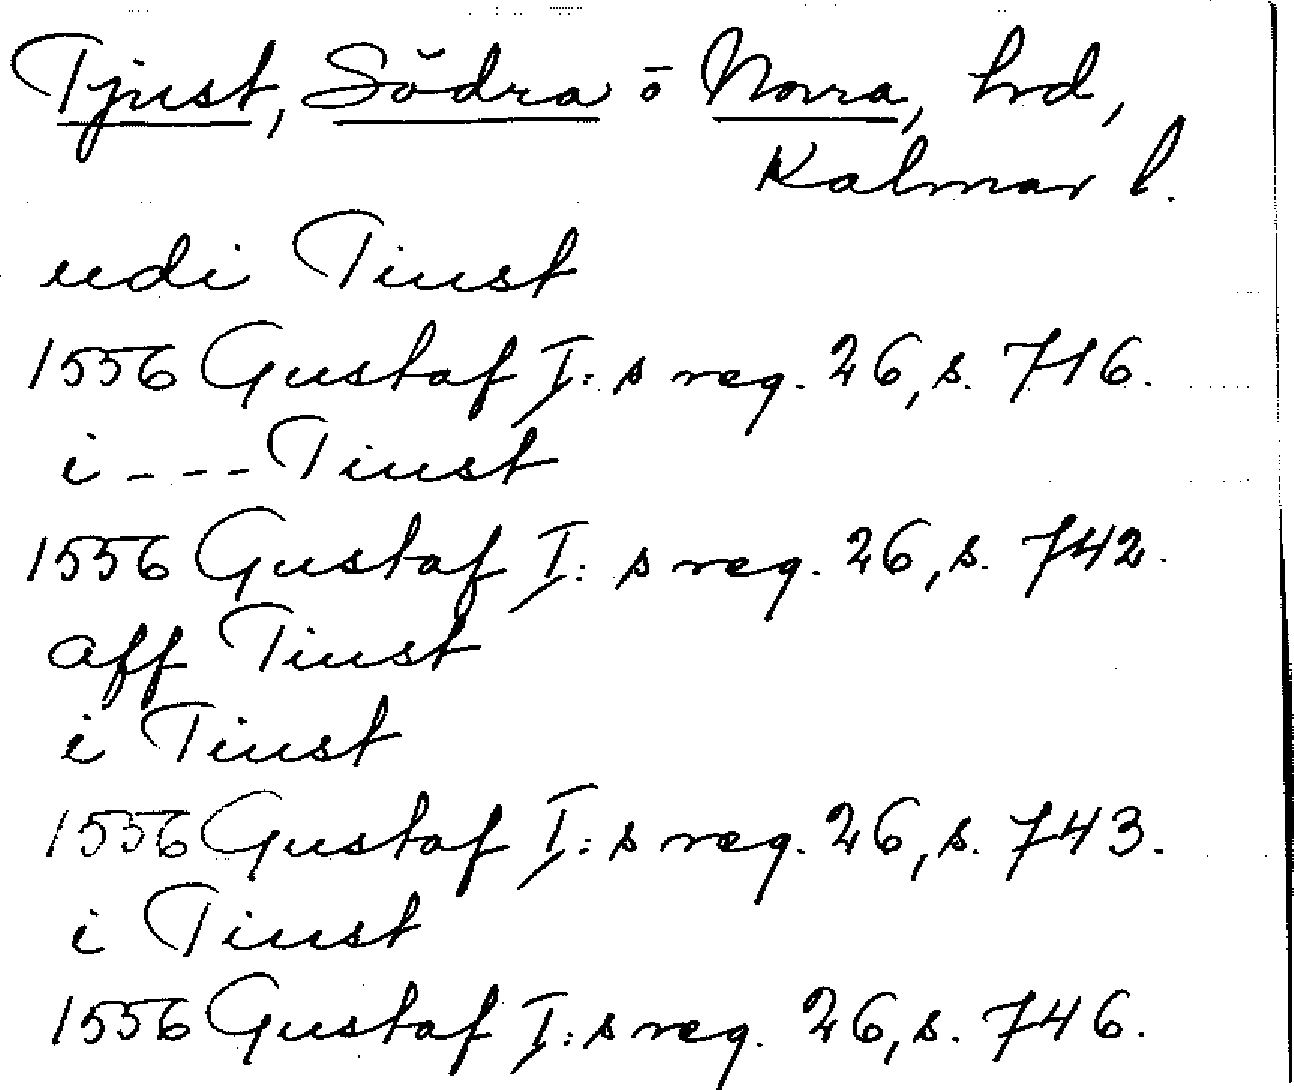 Tjust, Södra o Norra, hrd,
Kalmar l.
udi Tiust
1556 Gustaf I:s reg. 26, s. 716.
i - - - Tiust
1556 Gustaf I:s reg. 26, s. 742.
aff Tiust
i Tiust
1556 Gustaf I:s reg. 26, s. 743.
i Tiust
1556 Gustaf I:s reg. 26, s. 746.